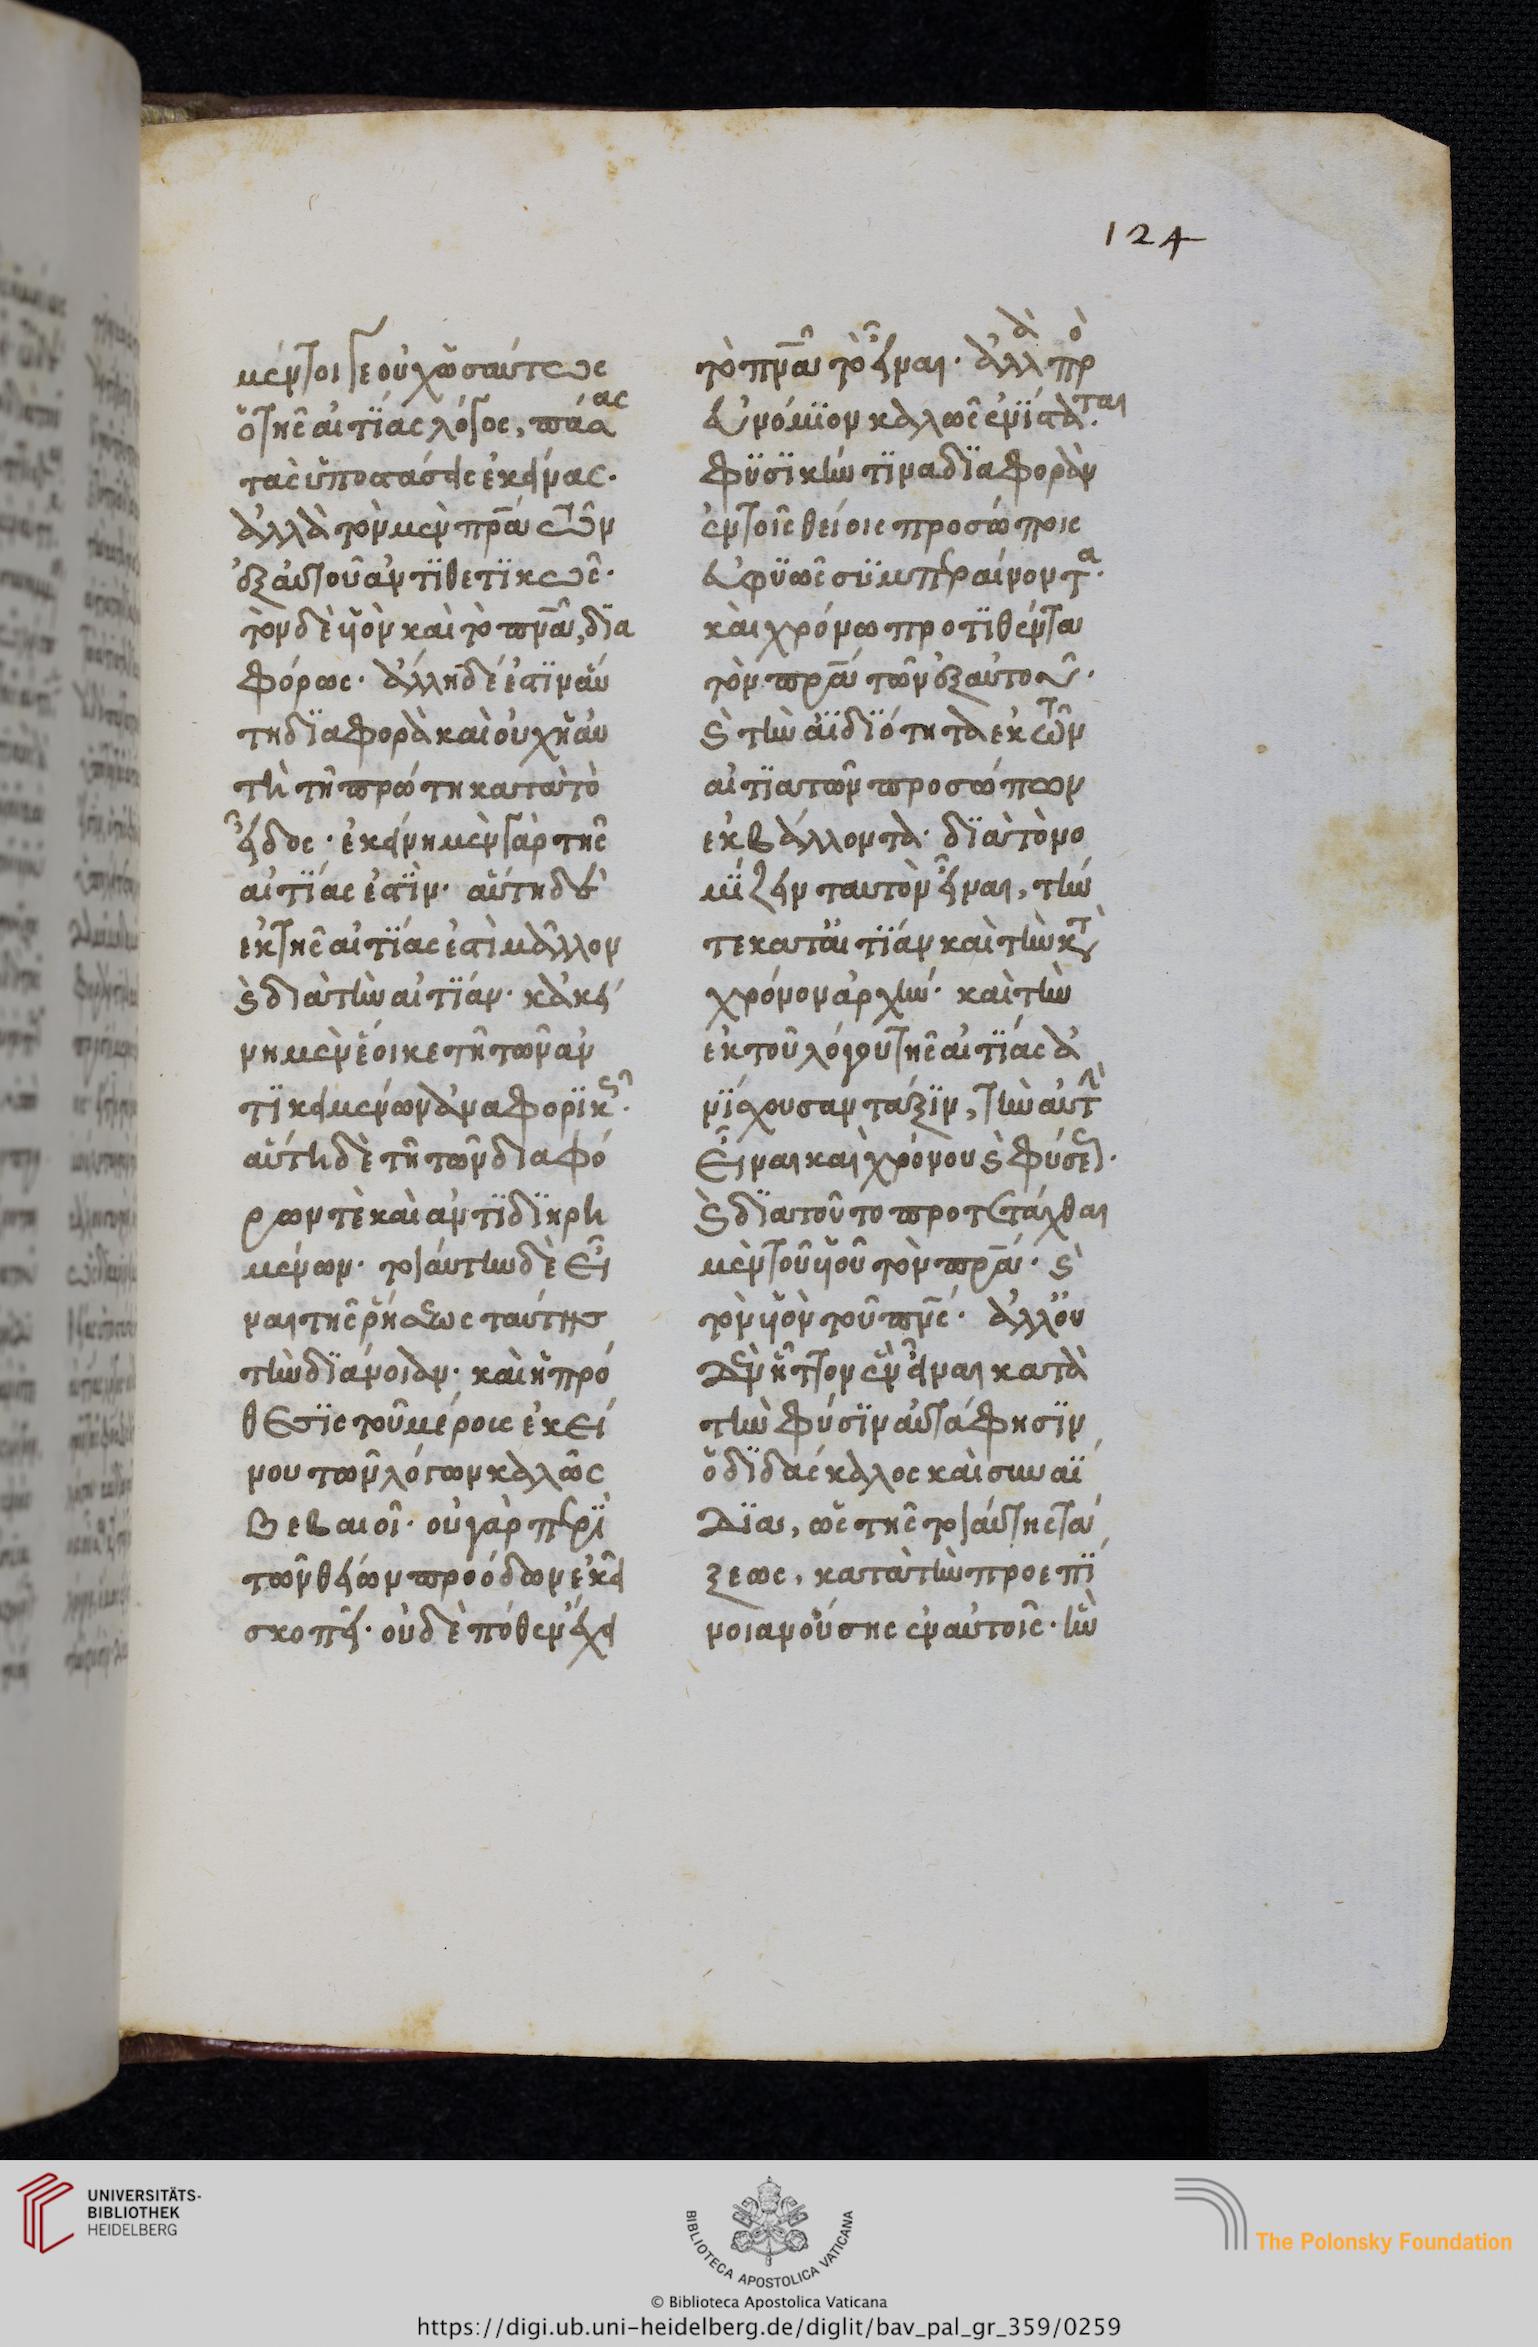 124
μέντοι γε οὐχ ὡσαύτως
ὁ τῆς αἰτίας λόγος, πάσας
τὰς ὑποστάσεις ἐκείνας·
ἀλλὰ τὸν μὲν πρ̅α τῶν
ἐξ αὐτοῦ ἀντιθετικῶς·
τὸν δὲ υἱὸν καὶ τὸ πν̅α, δια
φόρως· ἄλλη δέ ἐστιν αὕ
τη διαφορὰ καὶ οὐχ ἡ αὐ
τὴ τῆ πρώτη κατὰ τὸ
εἶδος· ἐκείνη μὲν γὰρ τῆς
αἰτίας ἐστὶν· αὕτη δὲ
ἐκ τῆς αἰτίας ἐστὶ μᾶλλον
καὶ διὰ τὴν αἰτίαν· κἀκεί
νη μὲν ἔοικε τῆ τῶν ἀν
τικειμένων ἀναφορικῶς·
αὕτη δὲ τῆ τῶν διαφό
ρων τὲ καὶ ἀντιδιηρη
μένων· τοιαύτην δὲ εἶ
ναι τῆς ῥήσεως ταύτης
τὴν διάνοιαν· καὶ ἡ πρό
θεσις τοῦ μέρους ἐκεί
νου τῶν λόγων καλῶς
βεβαιοῖ· οὐ γὰρ περὶ
τῶν θείων προόδων ἐκεῖ
σκοπεῖ· οὐδὲ πόθεν ἔχει
τὸ πν̅α τὸ εἶναι· ἀλλὰ πρὸ
εὐνόμιον καλῶς ἐνίσταται·
φυσικήν τινα διαφορὰν
ἐν τοῖς θείοις προσώποις
ἀφυῶς συμπεραίνοντα·
καὶ χρόνω προτιθέντα
τὸν πρ̅α τῶν ἐξ αὐτοῦ·
καὶ τὴν ἀϊδιότητα ἐκ τῶν
αἰτιατῶν προσώπων
ἐκβάλλοντα· διὰ τὸ νο
μίζειν ταυτὸν εἶναι, τήν
τε κατ' αἰτίαν καὶ τὴν κατὰ
χρόνον ἀρχήν· καὶ τὴν
ἐκ τοῦ λόγου τῆς αἰτίας ἀ
νίσχουσαν τάξιν, τὴν αὐτὴν
εἶναι καὶ χρόνου καὶ φύσεως·
καὶ διὰ τοῦτο προτετάχθαι
μὲν τοῦ υἱοῦ τὸν πρ̅α· καὶ
τὸν υἱὸν τοῦ πν̅ς· ἀλλ' οὐ
δὲν ἧττον ἓν εἶναι κατὰ
τὴν φύσιν αὐτά φησὶν
ὁ διδάσκαλος καὶ συναΐ
δια, ὡς τῆς τοιαύτης τά
ξεως, κατὰ τὴν προεπί
νοιαν οὔσης ἐν αὐτοῖς· ἣν
UNIVERSITÄTS-
BIBLIOTHEK
HEIDELBERG
BIBLIOTECA APOSTOLICA VATICANA
The Polonsky Foundation
© Biblioteca Apostolica Vaticana
https://digi.ub.uni-heidelberg.de/diglit/bav_pal_gr_359/0259